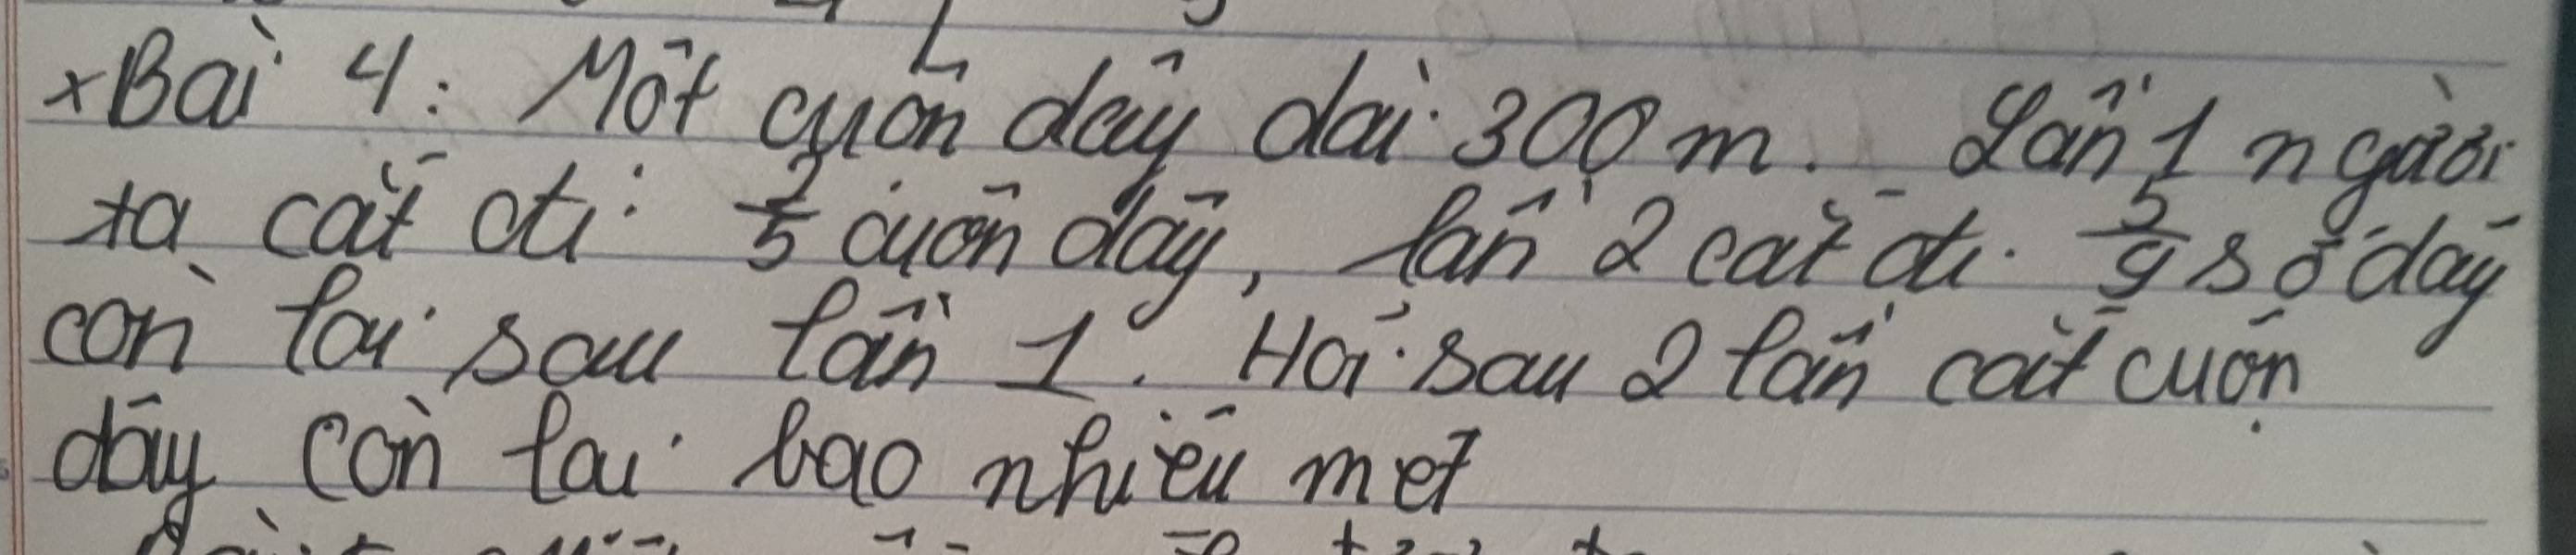 x Bài 4: Một cuộn dây dài 300 m. Lần 1 người
ta cắt đi 2/5 cuộn dây, lần 2 cắt đi 5/9 số dây
còn lại sau lần 1. Hỏi sau 2 lần cắt cuộn
dây còn lại bao nhiêu mét